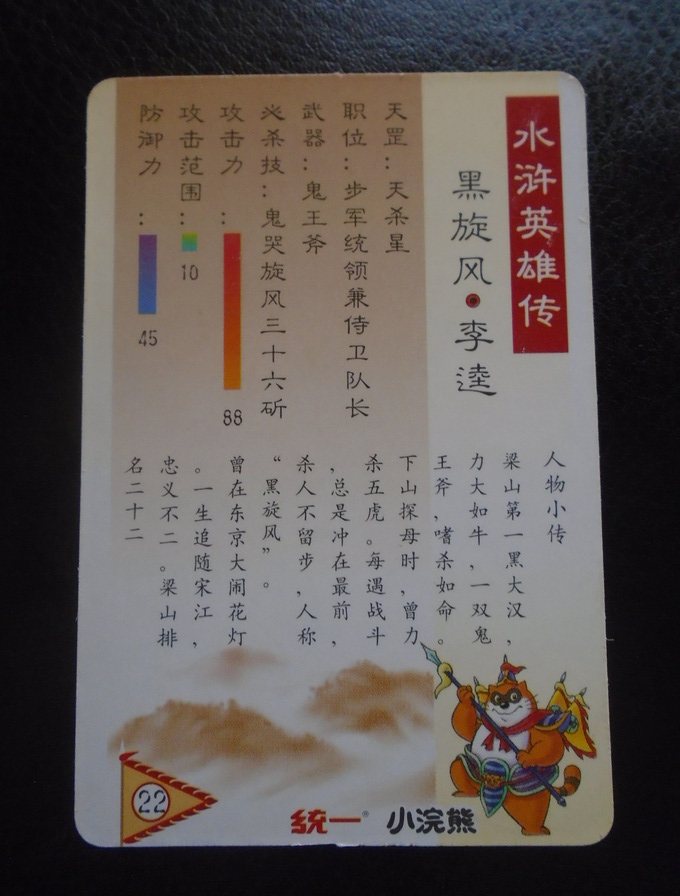 水浒英雄传
黑旋风·李逵
天罡：天杀星
职位：步军统领兼侍卫队长
武器：鬼王斧
必杀技：鬼哭旋风三十六斫
攻击力：
88
攻击范围：
10
防御力：
45
人物小传
梁山第一黑大汉，
力大如牛，一双鬼
王斧，嗜杀如命。
下山探母时，曾力
杀五虎。每遇战斗
，总是冲在最前，
杀人不留步，人称
“黑旋风”。
曾在东京大闹花灯
。一生追随宋江，
忠义不二。梁山排
名二十二
22
统一® 小浣熊